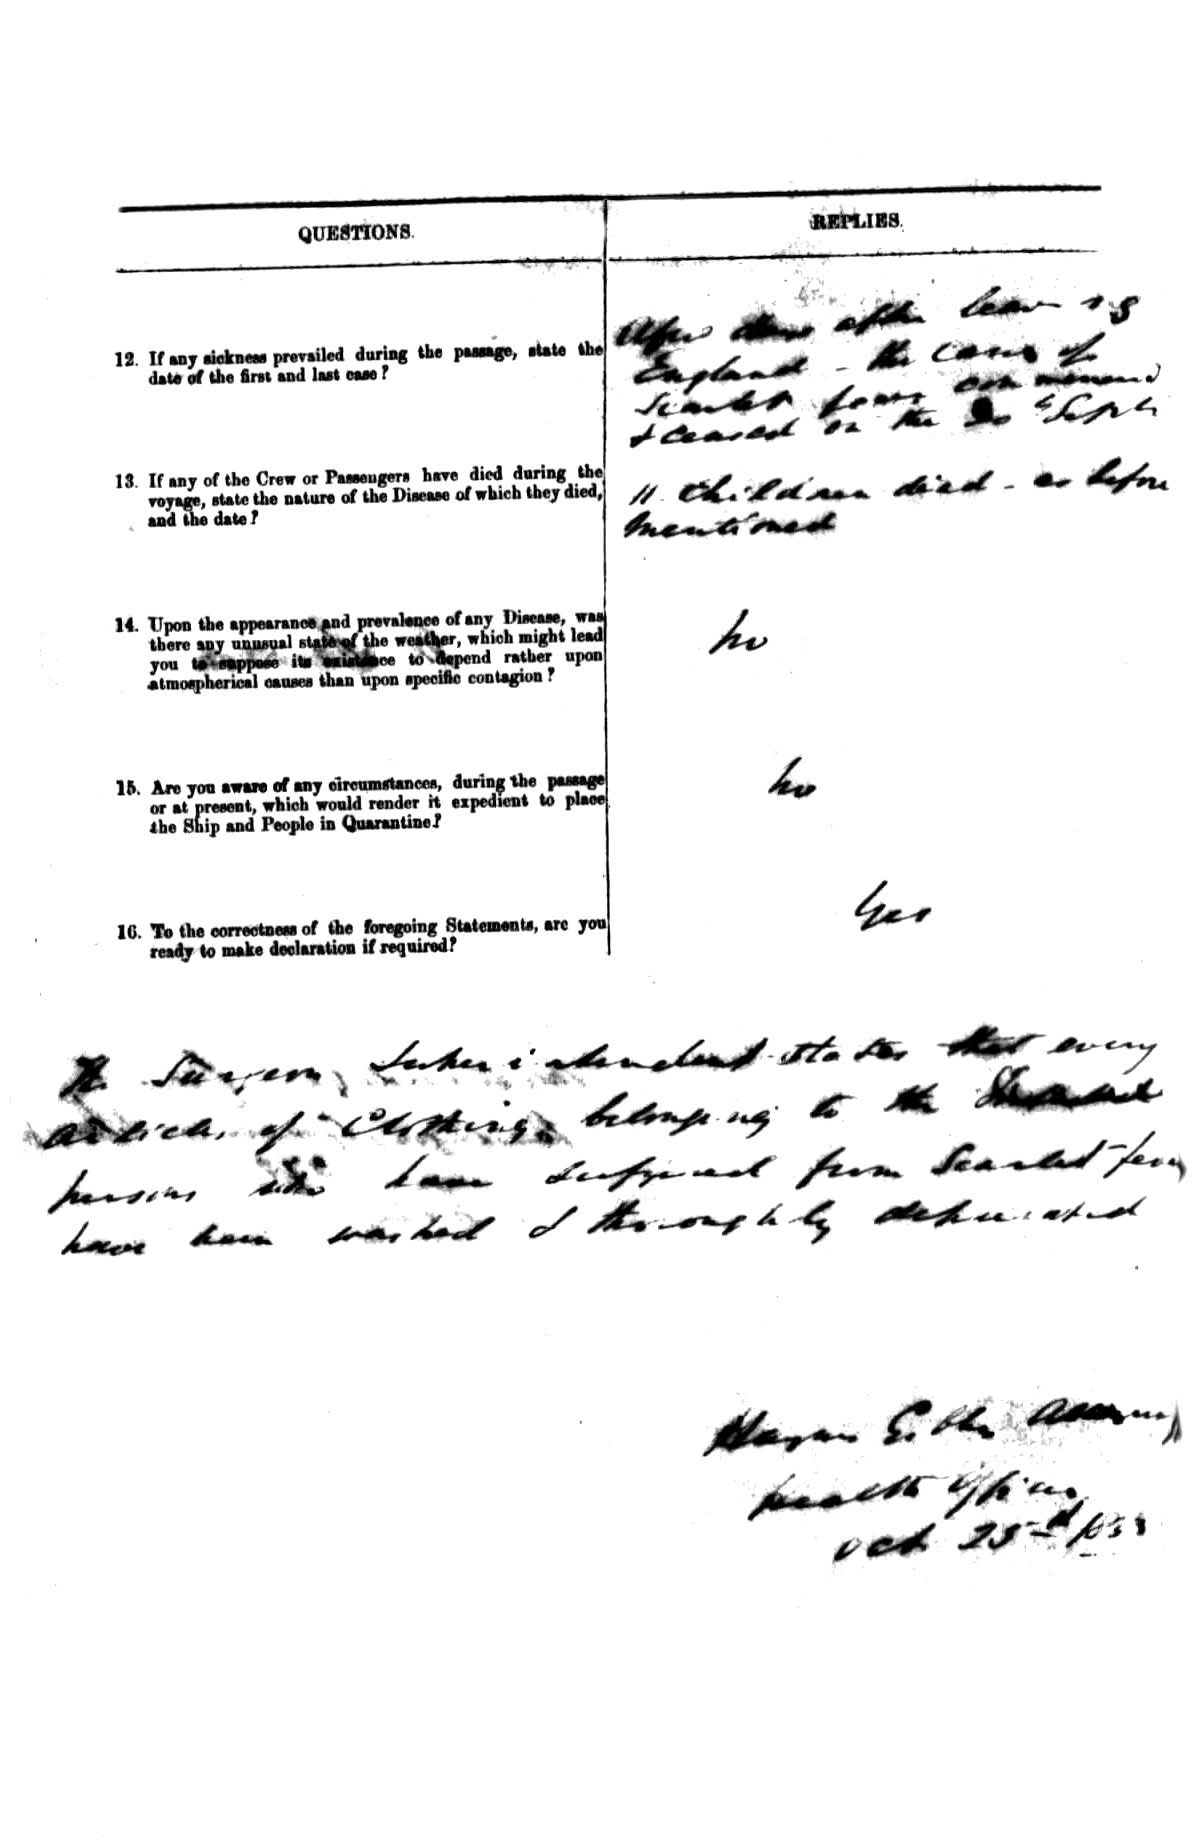 QUESTIONS.
REPLIES.
12. If any sickness prevailed during the passage, state the
date of the first and last case?
A few days after leaving
England - the cases of
Scarlet fever commenced
& ceased on the 20th Septr
13. If any of the Crew or Passengers have died during the
voyage, state the nature of the Disease of which they died,
and the date?
11 Children died - as before
mentioned
14. Upon the appearance and prevalence of any Disease, was
there any unusual state of the weather, which might lead
you to suppose its existence to depend rather upon
atmospherical causes than upon specific contagion?
no
15. Are you aware of any circumstances, during the passage
or at present, which would render it expedient to place
the Ship and People in Quarantine?
no
16. To the correctness of the foregoing Statements, are you
ready to make declaration if required?
Yes
The Surgeon Superintendent states that every
article of Clothing belonging to the
persons who have suffered from Scarlet fever
have been washed & thoroughly depurated
Haynes Gibbes Alleyne
Health Officer
Oct 25